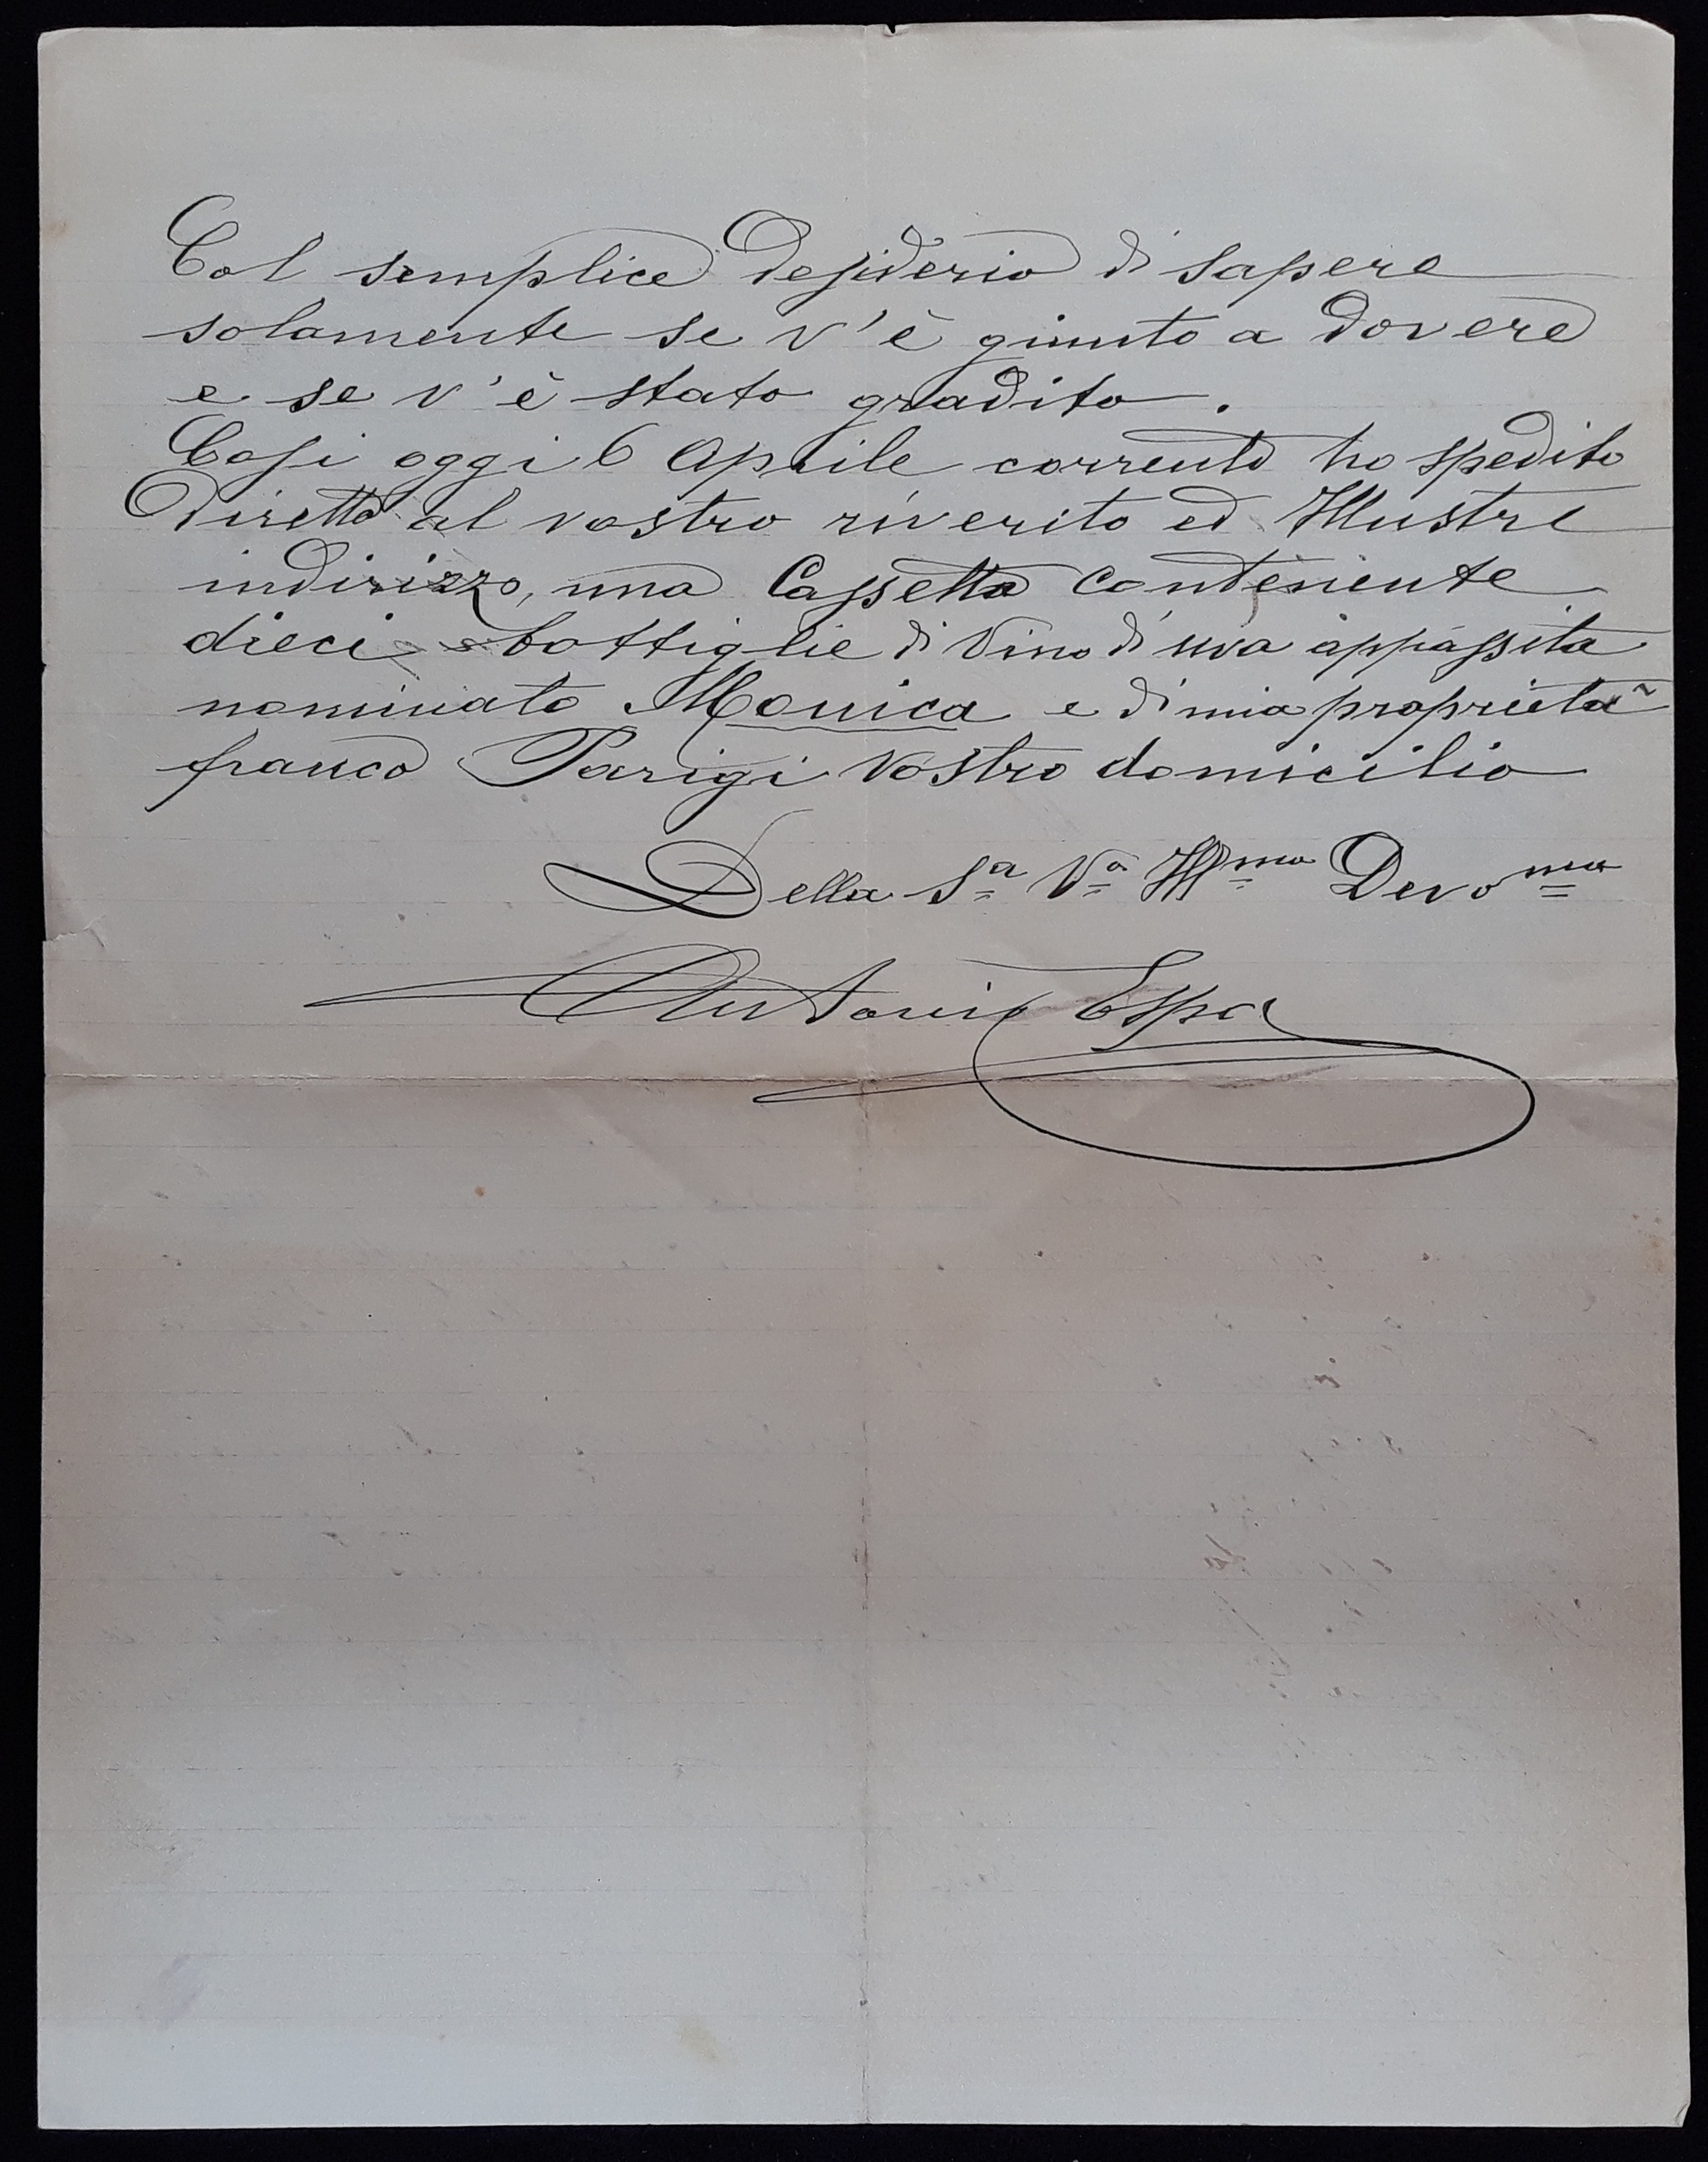 Col semplice desiderio di sapere
solamente se v'è giunto a dovere
e se v'è stato gradito.
Cosi oggi 6 Aprile corrente ho spedito
diretto al vostro riverito ed Illustre
indirizzo, una Cassetta contenente
dieci bottiglie di Vino d'uva appassita
nominato Monica e di mia proprietà
franco Parigi vostro domicilio
Della Sª Vª Illma Devoma
Antonio Espa